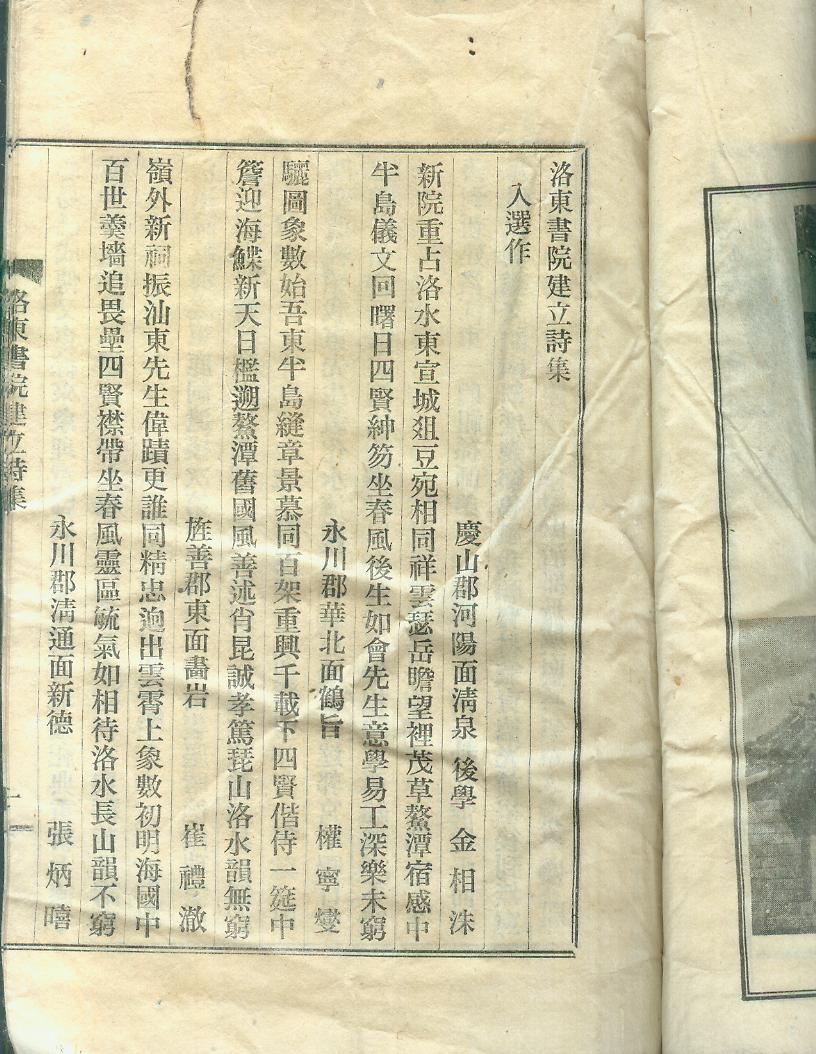 洛東書院建立詩集
入選作
慶山郡河陽面淸泉 後學 金相洙
新院重占洛水東宣城俎豆宛相同祥雲瑟岳瞻望裡茂草鰲潭宿感中
半島儀文回曙日四賢紳笏坐春風後生如會先生意學易工深樂未窮
永川郡華北面鶴旨 權寧燮
驪圖象數始吾東半島縫章景慕同百架重興千載下四賢偕侍一筵中
簷迎海鰈新天日檻遡鰲潭舊國風善述肖昆誠孝篤琵山洛水韻無窮
旌善郡東面畵岩 崔禮澈
嶺外新祠振汕東先生偉蹟更誰同精忠逈出雲霄上象數初明海國中
百世羹墻追畏壘四賢襟帶坐春風靈區毓氣如相待洛水長山韻不窮
永川郡淸通面新德 張炳暿
洛東書院建立詩集